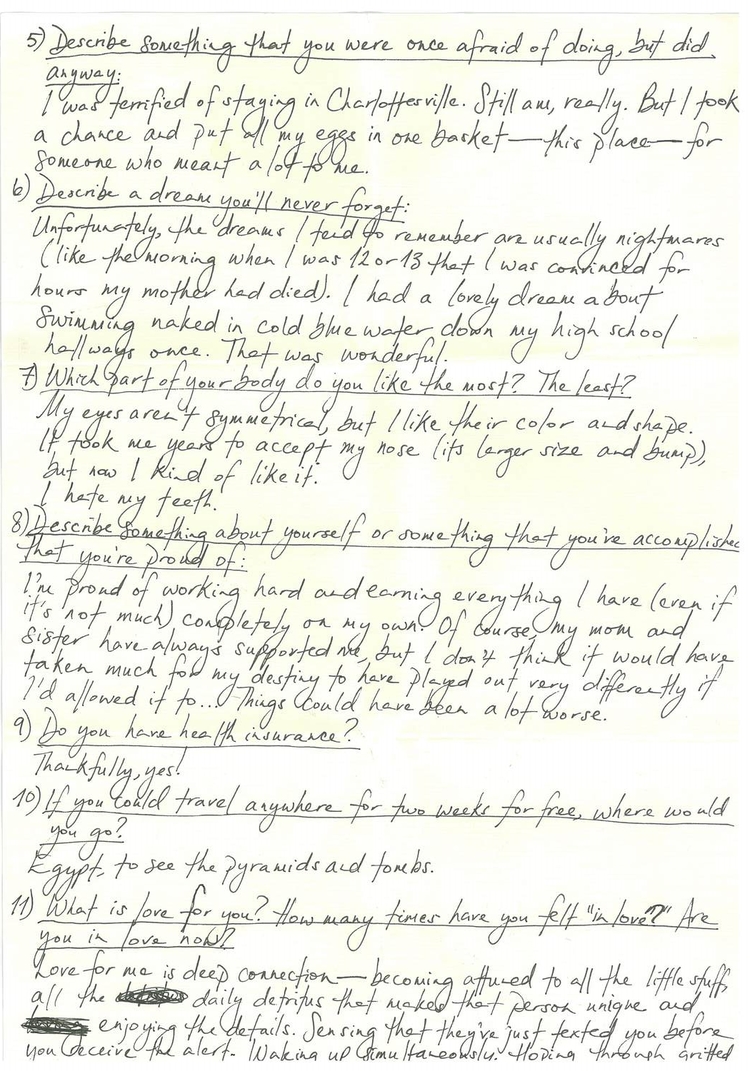 5) Describe something that you were once afraid of doing, but did
anyway:
I was terrified of staying in Charlottesville. Still am, really. But I took
a chance and put all my eggs in one basket—this place—for
someone who meant a lot to me.
6) Describe a dream you'll never forget:
Unfortunately, the dreams I tend to remember are usually nightmares
(like the morning when I was 12 or 13 that I was convinced for
hours my mother had died). I had a lovely dream about
swimming naked in cold blue water down my high school
hallways once. That was wonderful.
7) Which part of your body do you like the most? The least?
My eyes aren't symmetrical, but I like their color and shape.
It took me years to accept my nose (its larger size and bump),
but now I kind of like it.
I hate my teeth.
8) Describe something about yourself or something that you've accomplished
that you're proud of:
I'm proud of working hard and earning everything I have (even if
it's not much) completely on my own. Of course, my mom and
sister have always supported me, but I don't think it would have
taken much for my destiny to have played out very differently if
I'd allowed it to... Things could have been a lot worse.
9) Do you have health insurance?
Thankfully, yes!
10) If you could travel anywhere for two weeks for free, where would
you go?
Egypt, to see the pyramids and tombs.
11) What is love for you? How many times have you felt "in love?" Are
you in love now?
Love for me is deep connection—becoming attuned to all the little stuff,
all the daily detritus that makes that person unique and
enjoying the details. Sensing that they've just texted you before
you receive the alert. Waking up simultaneously. Hoping through gritted